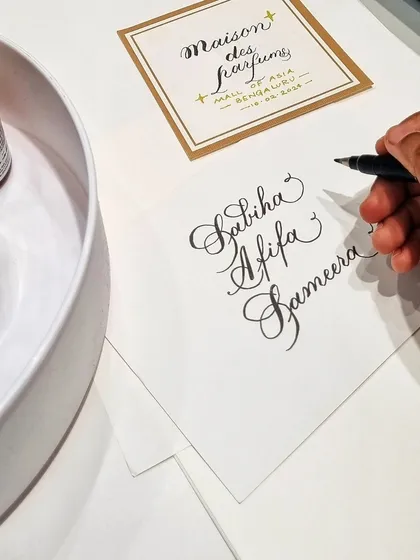 Maison
des
parfums
MALL OF ASIA
BENGALURU
— 10.02.2024 —
Sabiha
Afifa
Sameera